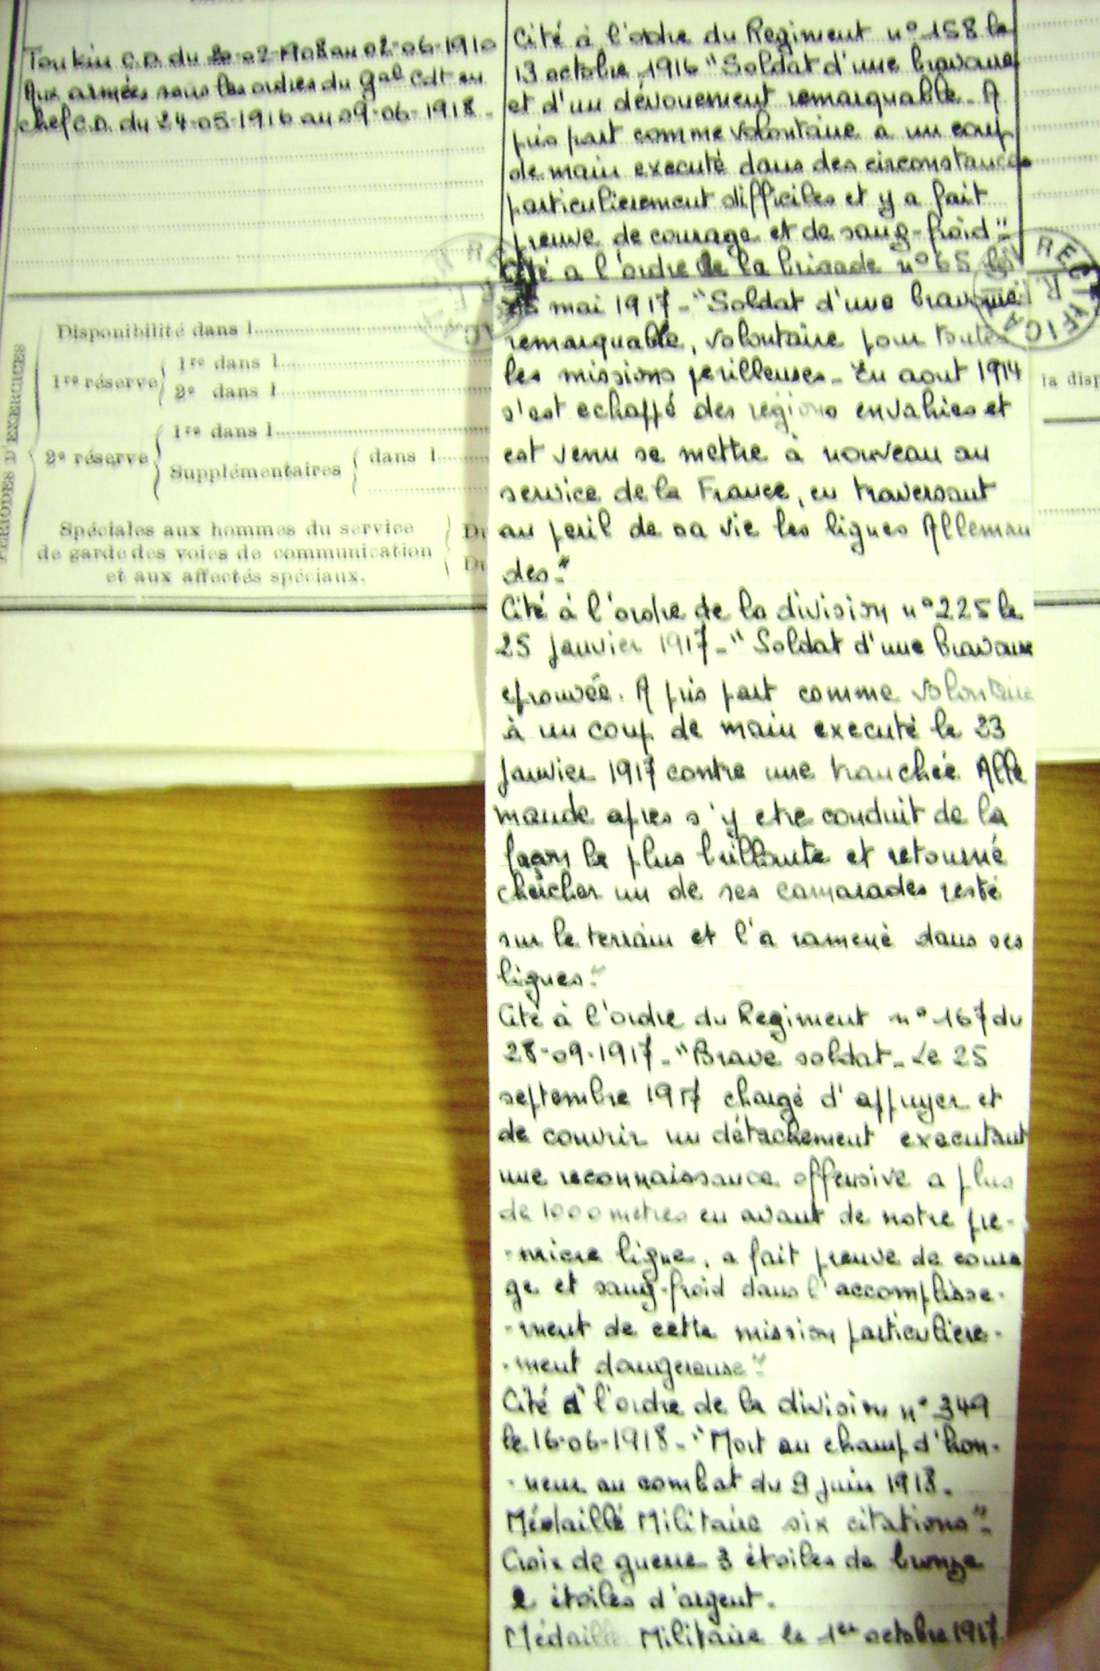 Tonkin C.D. du 20-02-1908 au 02-06-1910
Aux armées sous les ordres du Gal Cdt en
chef C.D. du 24-05-1916 au 09-06-1918.
Cité à l'ordre du Regiment n° 158 le
13 octobre 1916 "Soldat d'une bravoure
et d'un dévouement remarquable. A
pris part comme volontaire a un coup
de main executé dans des circonstances
particulierement difficiles et y a fait
preuve de courage et de sang-froid".
Cité a l'ordre de la brigade n° 65 le
mai 1917 - "Soldat d'une bravoure
remarquable, volontaire pour toutes
les missions perilleuses. En aout 1914
s'est echappé des regions envahies et
est venu se mettre à nouveau au
service de la France, en traversant
au peril de sa vie les lignes Alleman
des."
Cité à l'ordre de la division n° 225 le
25 janvier 1917 - "Soldat d'une bravoure
eprouvée. A pris part comme volontaire
à un coup de main executé le 23
janvier 1917 contre une tranchée Alle
mande apres s'y etre conduit de la
façon la plus brillante et retourné
chercher un de ses camarades resté
sur le terrain et l'a ramené dans ses
lignes."
Cité à l'ordre du Regiment n° 167 du
28-09-1917 - "Brave soldat - Le 25
septembre 1917 chargé d'appuyer et
de couvrir un détachement executant
une reconnaissance offensive a plus
de 1000 metres en avant de notre pre-
-miere ligne, a fait preuve de coura
ge et sang-froid dans l'accomplisse-
-ment de cette mission particuliere-
-ment dangereuse".
Cité à l'ordre de la division n° 349
le 16-06-1918 - "Mort au champ d'hon-
-neur au combat du 9 juin 1918.
Médaillé Militaire six citations".
Croix de guerre 3 étoiles de bronze
2 étoiles d'argent.
Médaille Militaire le 1er octobre 1917
PÉRIODES D'EXERCICES
Disponibilité dans l
1re réserve
1re dans l
2e dans l
2e réserve
1re dans l
Supplémentaires
dans l
Spéciales aux hommes du service
de garde des voies de communication
et aux affectés spéciaux.
Du
Du
la disp
RECTIFICA